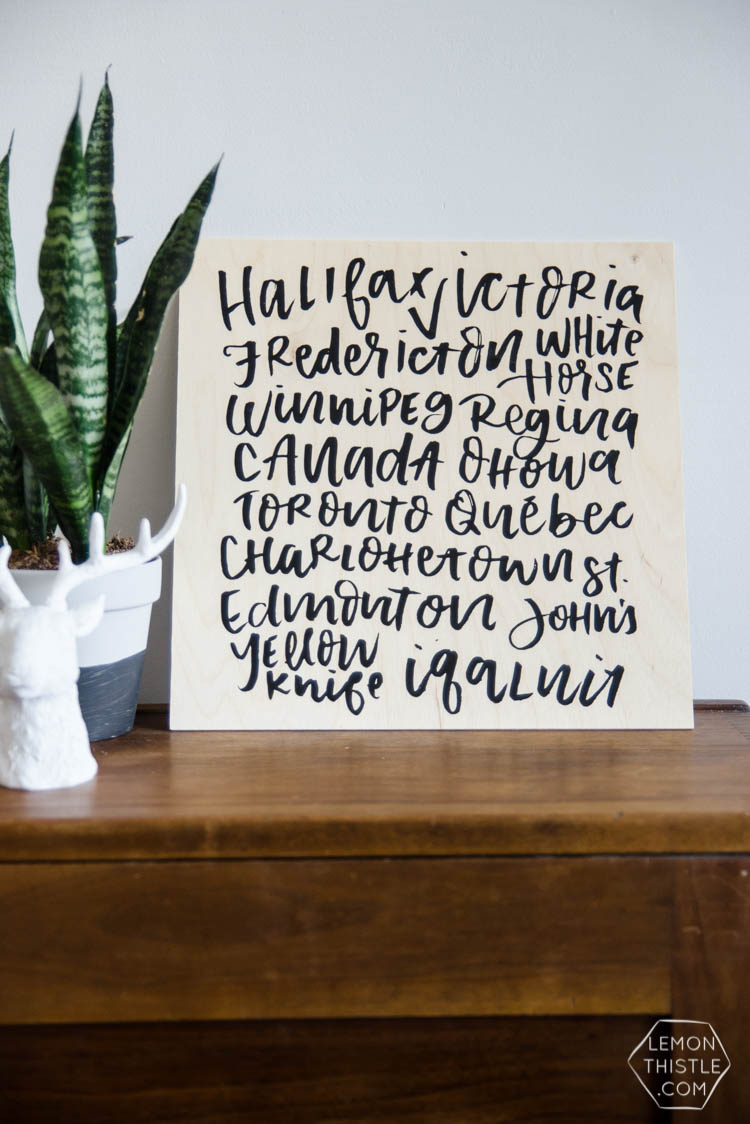 Halifax Victoria
Fredericton White
Horse
Winnipeg Regina
CANADA Ottawa
TORONTO Québec
CHARLOTTETOWN St.
Edmonton John's
Yellow
knife iqaLuit
LEMON
THISTLE
.COM